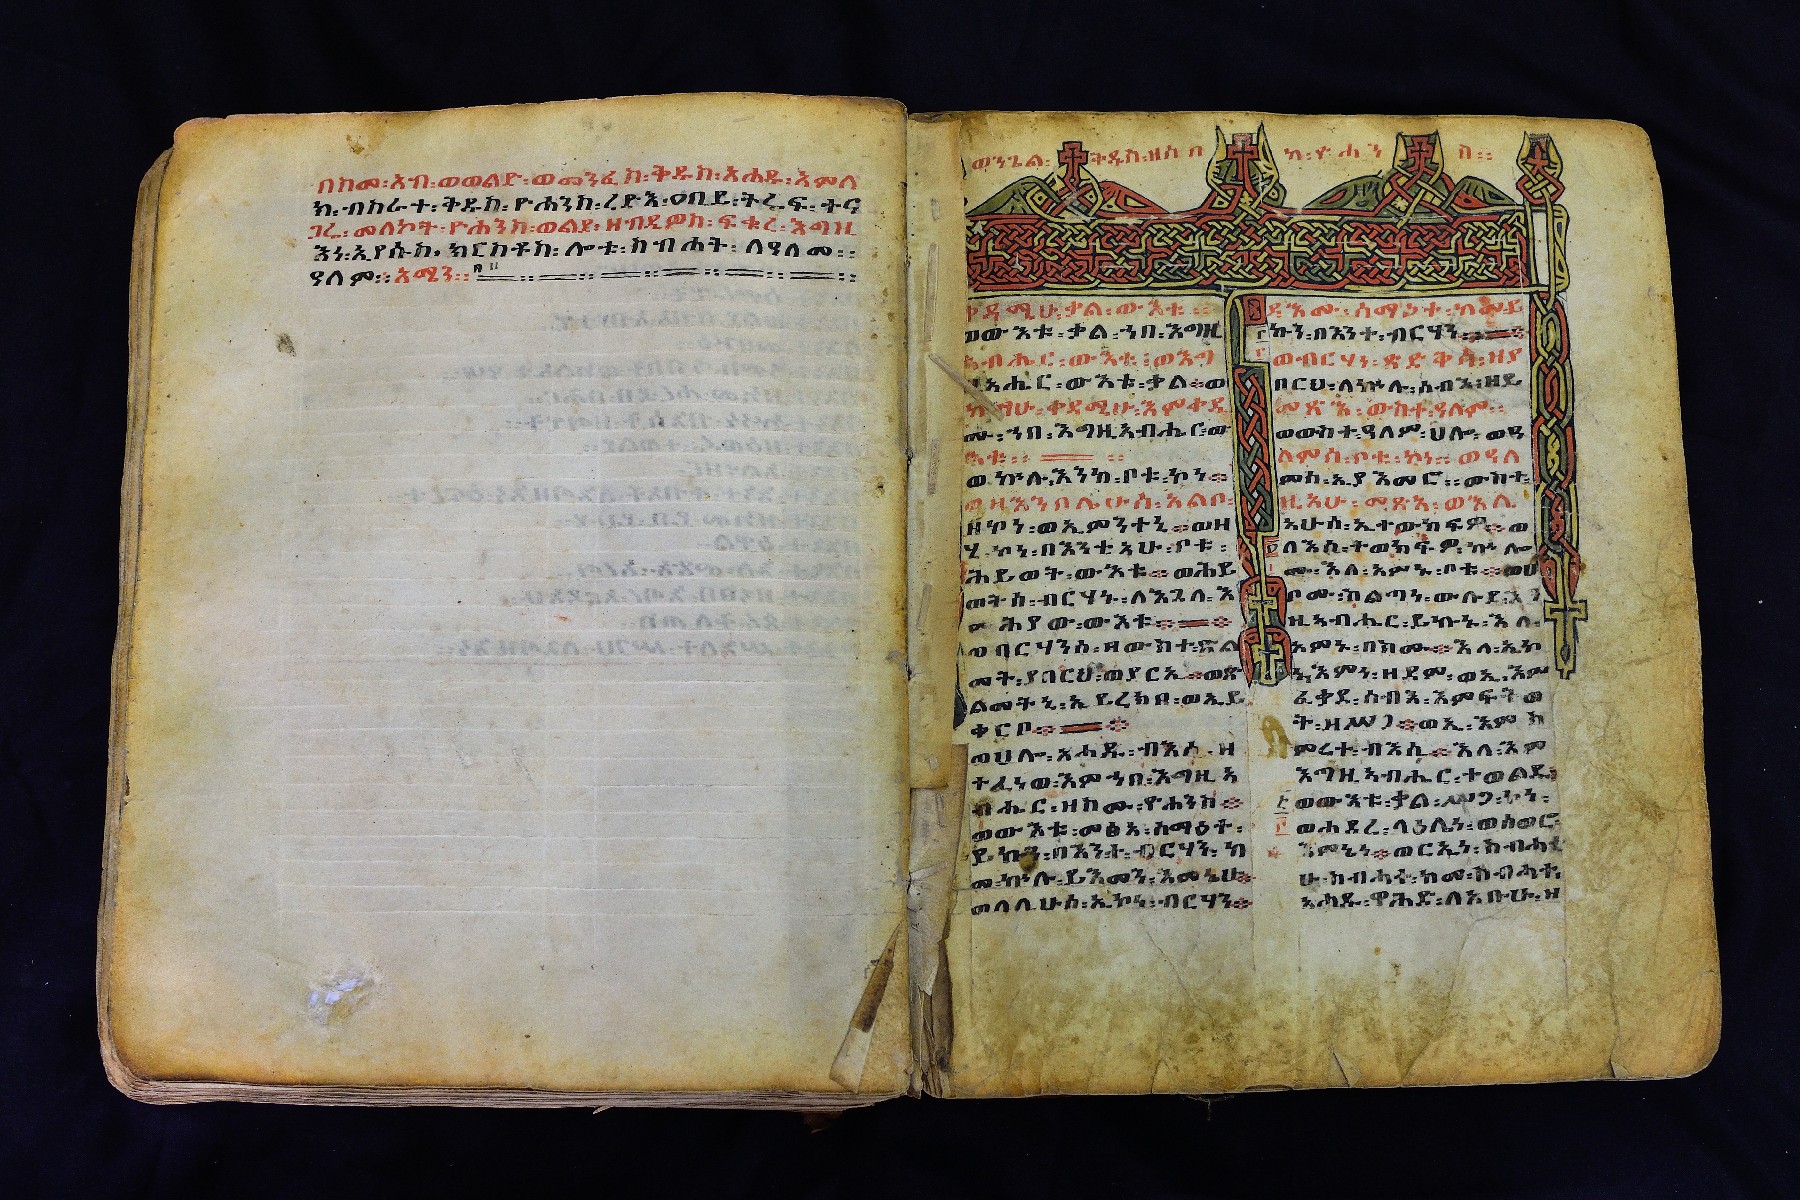 በስመ፡ አብ፡ ወወልድ፡ ወመንፈስ፡ ቅዱስ፡ አሐዱ፡ አምላ
ክ፡ ብስራተ፡ ቅዱስ፡ ዮሐንስ፡ ረድእ፡ ዐቢይ፡
መለኮት፡ ዮሐንስ፡ ወልደ፡ ዘብዴዎስ፡ ፍቁረ፡ እግዚ
እነ፡ ኢየሱስ፡ ክርስቶስ፡ ሎቱ፡ ስብሐት፡ ለዓለመ፡፡
ዓለም፡፡ አሜን፡፡
ወንጌል፡ ቅዱስ፡ ዘሰበ ከ ዮ ሐ ን ስ፡፡
ቀዳሚሁ፡ ቃል፡ ውእቱ፡፡
ወውእቱ፡ ቃል፡ ኀበ፡ እግዚ
አብሔር፡ ውእቱ፡ ወእግ
ዚአሔር፡ ውእቱ፡ ቃል፡፡ ወ
ከማሁ፡ ቀዳሚሁ፡ እምቀዳ
ሙ፡ ኀበ፡ እግዚአብሔር፡ ው
እቱ፡፡
ወኵሉ፡ እንከ፡ ቦቱ፡ ኮነ፡፡
ወዘእንበሌሁሰ፡ አልቦ፡
ዘኮነ፡ ወኢምንተኒ፡፡ ወዘ
ሂ፡ ኮነ፡ በእንተ፡ አሁ፡ ቦቱ፡
ሕይወት፡ ውእቱ፡፡ ወሕይ
ወትሰ፡ ብርሃኑ፡ ለእጓለ፡ እ
መሕያው፡ ውእቱ፡፡
ወብርሃንሰ፡ ዘውስተ፡ ጽል
መት፡ ያበርህ፡ ወያርኢ፡፡ ወጽ
ልመትኒ፡ ኢይረክቦ፡ ወኢይ
ቀርቦ፡፡
ወሀሎ፡ አሐዱ፡ ብእሲ፡ ዘ
ተፈነወ፡ እምኀበ፡ እግዚአ
ብሔር፡ ዘስሙ፡ ዮሐንስ፡፡
ወውእቱ፡ መፅአ፡ ለማዕተ፡
ይኩን፡ በእንተ፡ ብርሃን፡ ከ
መ፡ ኵሉ፡ ይእመን፡ እመኔሁ፡፡
ወለሊሁሰ፡ ኢኮነ፡ ብርሃን፡፡
ዳእሙ፡ ሰማዕተ፡ ከመ፡ ይ
ኩን፡ በእንተ፡ ብርሃን፡፡
ወብርሃን፡ ጽድቅሰ፡ ዘያ
በርህ፡ ለኵሉ፡ ሰብእ፡ ዘይ
መጽእ፡ ውስተ፡ ዓለም፡፡
ወውስተ፡ ዓለም፡ ሀሎ፡ ወዓ
ለምሰ፡ ቦቱ፡ ኮነ፡፡ ወዓለ
ምሰ፡ ኢያእመሮ፡፡ ውስተ፡
ዚአሁ፡ መጽአ፡ ወእሊ
አሁሰ፡ ኢተወክፍዎ፡፡ ወ
ለእለ፡ ተወክፍዎ፡ ኵሎ
ሙ፡ እለ፡ አምኑ፡ ቦቱ፡፡ ወሀ
ቦሙ፡ ስልጣነ፡ ውሉደ፡ እግ
ዚአብሔር፡ ይኩኑ፡ እለ፡
አምኑ፡ በስሙ፡፡ እለ፡ ኢኮ
ኑ፡ እምነ፡ ዘደም፡ ወኢ፡ እም
ፈቃደ፡ ሰብእ፡ እምፍትወ
ት፡ ዘሥጋ፡፡ ወኢ፡ እምስ
ምረተ፡ ብእሲ፡፡ እለ፡ እም
እግዚአብሔር፡ ተወልዱ፡
ወውእቱ፡ ቃል፡ ሥጋ፡ ኮነ፡
ወሐደረ፡ ላዕሌነ፡ ወሰወር
ንምኔነ፡፡ ወርኢነ፡ ስብሐተ
ሁ፡ ስብሐተ፡ ከመ፡ ስብሐተ፡
አሐዱ፡ ዋሕድ፡ ለአቡሁ፡ ዘ